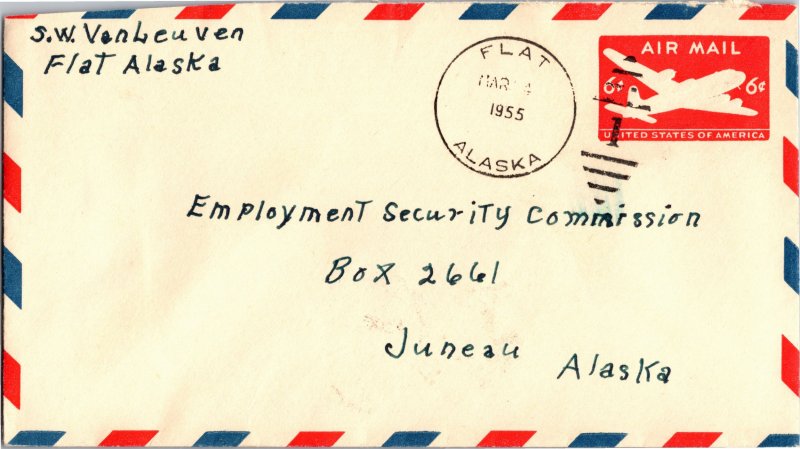 S.W. VanLeuven
Flat Alaska
FLAT
MAR 4
1955
ALASKA
AIR MAIL
6¢ 6¢
UNITED STATES OF AMERICA
Employment Security Commission
Box 2661
Juneau
Alaska